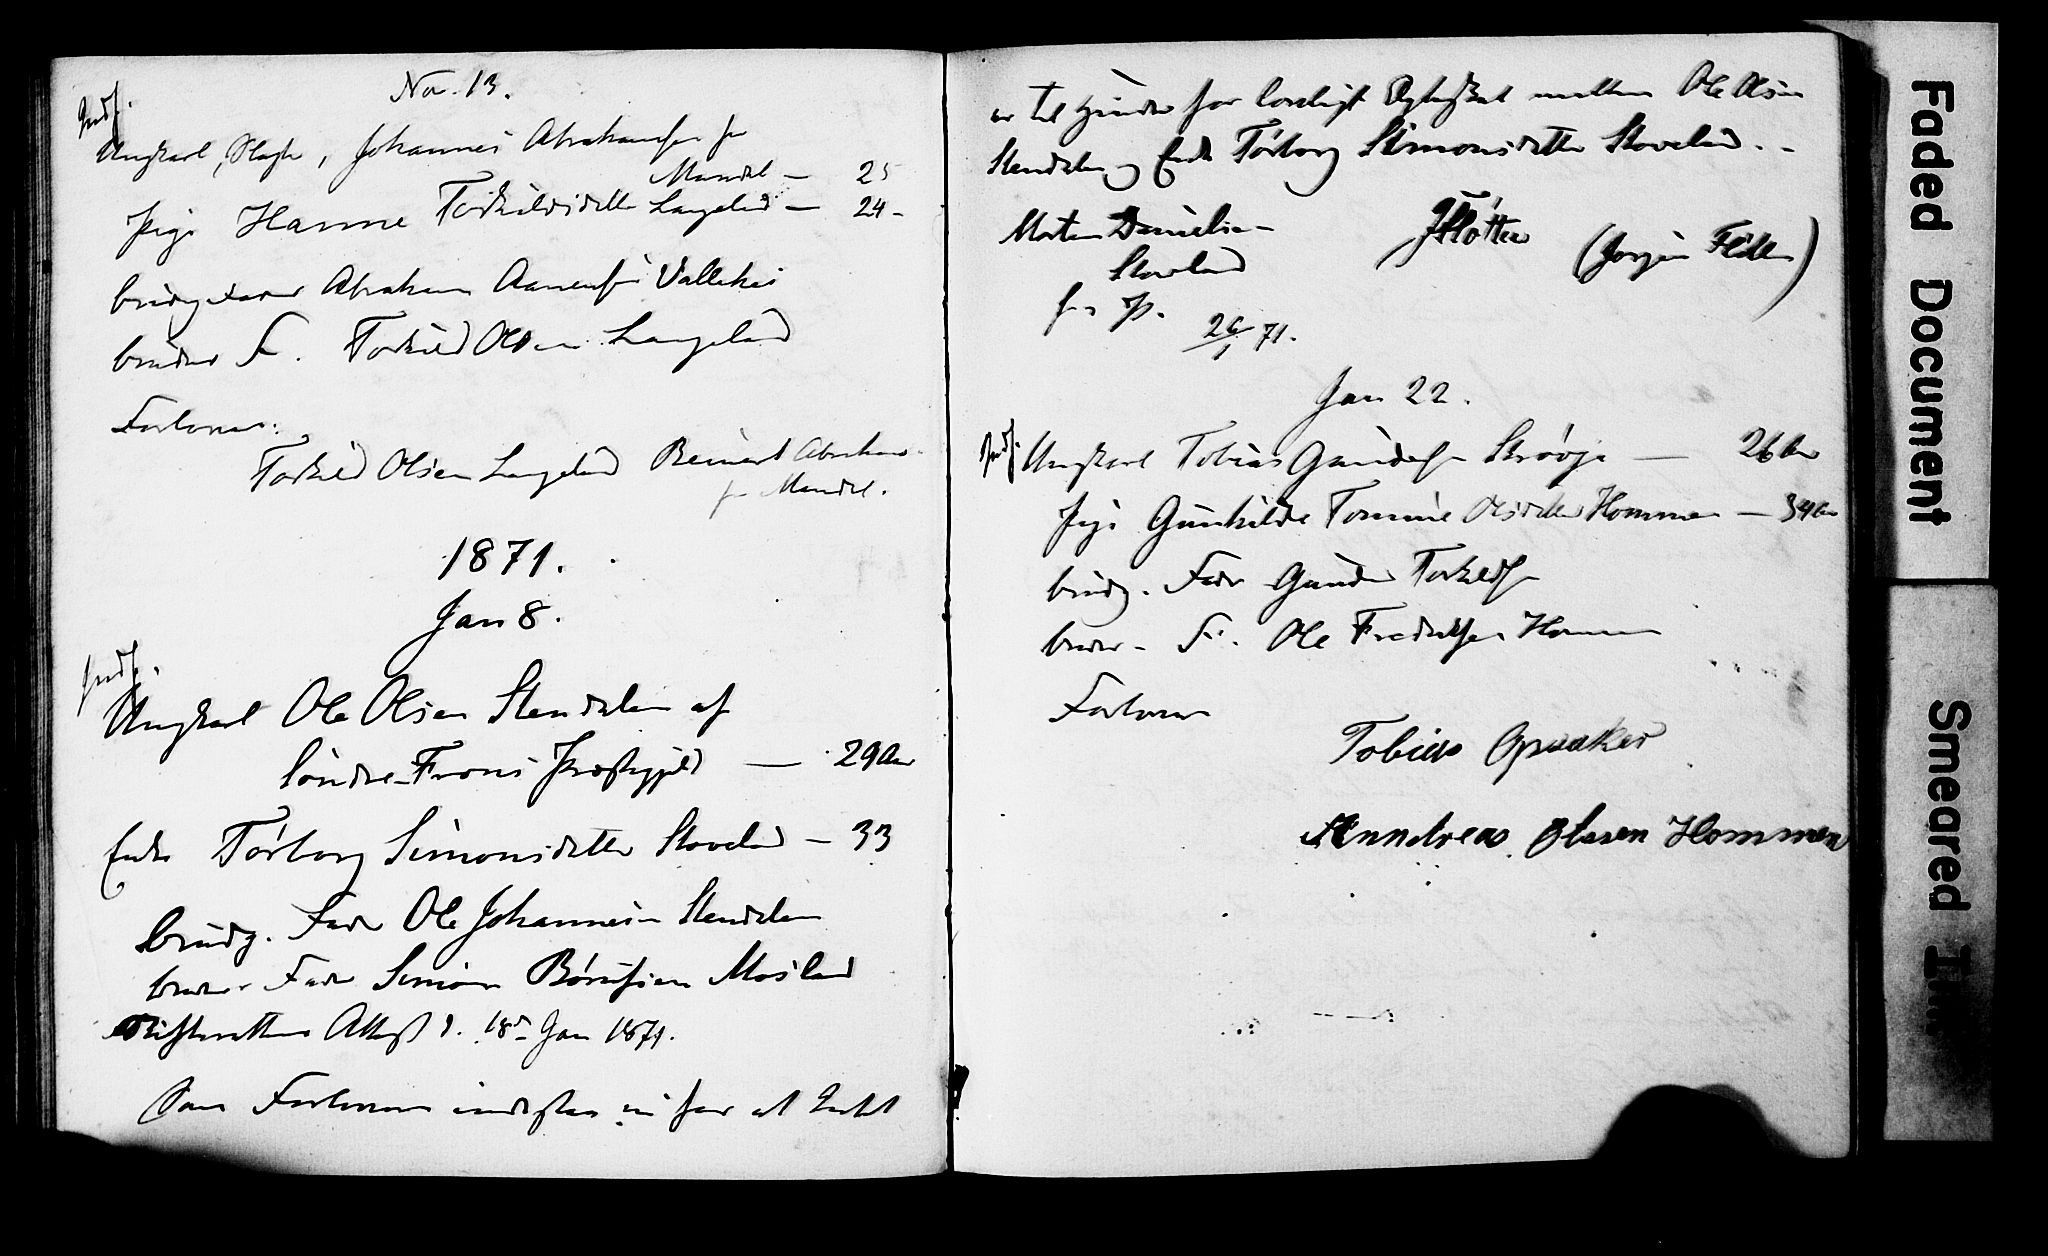 Nov. 13.
Indf.
Ungkarl, Johannes Abrahamsen fra
Mandal — 25
Pige Hanne Torkildsdatter Langeland — 24 -
brudg. Fader Abraham Aanensen Vallekei
brudens F. Torkild Olsen Langeland
Forlovere:
Torkild Olsen Langeland Reinert Abraham
fra Mandal.
1871.
Jan 8.
Indf.
Ungkarl Ole Olsen Stendalen af
søndre Frons Præstegjeld — 29 Aar
Enke Tørborg Simonsdatter Stoveland — 33
brudg. Fader Ole Johannesen Stendalen
brudens Fader Simon Børufsen Mosland
Skifterettens Attest d. 18de Jan 1871.
Som Forlovere indestaa vi for at Intet
er til Hinder for lovligt Ægteskab mellem Ole Olsen
Stendalen og Enke Tørborg Simonsdatter Stoveland. -
Morten Danielsen
Stoveland
JFløtten (Jørgen Fløtten)
m. f. P.
26/1 71.
Jan 22.
Indf. Ungkarl Tobias Gundersen Skrøvje — 26 Aar
Pige Gunhilde Tomine Olsdatter Hommen — 34 Aar
brudg. Fader Gunder Torkelds.
brudens F. Ole Fredriksen Hommen
Forlovere
Tobias Opsaker
Anndreas Olasen Hommen
Faded Document
Smeared